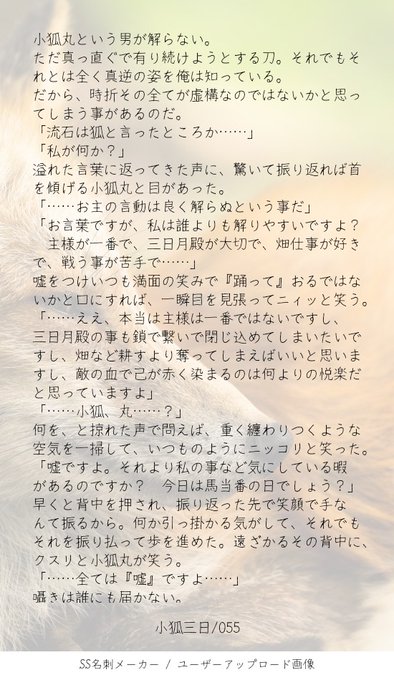 小狐丸という男が解らない。
ただ真っ直ぐで有り続けようとする刀。それでもそ
れとは全く真逆の姿を俺は知っている。
だから、時折その全てが虚構なのではないかと思っ
てしまう事があるのだ。
「流石は狐と言ったところか……」
「私が何か？」
溢れた言葉に返ってきた声に、驚いて振り返れば首
を傾げる小狐丸と目があった。
「……お主の言動は良く解らぬという事だ」
「お言葉ですが、私は誰よりも解りやすいですよ？
　主様が一番で、三日月殿が大切で、畑仕事が好き
で、戦う事が苦手で……」
嘘をつけいつも満面の笑みで『踊って』おるではな
いかと口にすれば、一瞬目を見張ってニィッと笑う。
「……ええ、本当は主様は一番ではないですし、
三日月殿の事も鎖で繋いで閉じ込めてしまいたいで
すし、畑など耕すより奪ってしまえばいいと思いま
すし、敵の血で己が赤く染まるのは何よりの悦楽だ
と思っていますよ」
「……小狐、丸……？」
何を、と掠れた声で問えば、重く纏わりつくような
空気を一掃して、いつものようにニッコリと笑った。
「嘘ですよ。それより私の事など気にしている暇
があるのですか？　今日は馬当番の日でしょう？」
早くと背中を押され、振り返った先で笑顔で手な
んて振るから。何か引っ掛かる気がして、それでも
それを振り払って歩を進めた。遠ざかるその背中に、
クスリと小狐丸が笑う。
「……全ては『嘘』ですよ……」
囁きは誰にも届かない。
小狐三日/055
SS名刺メーカー / ユーザーアップロード画像